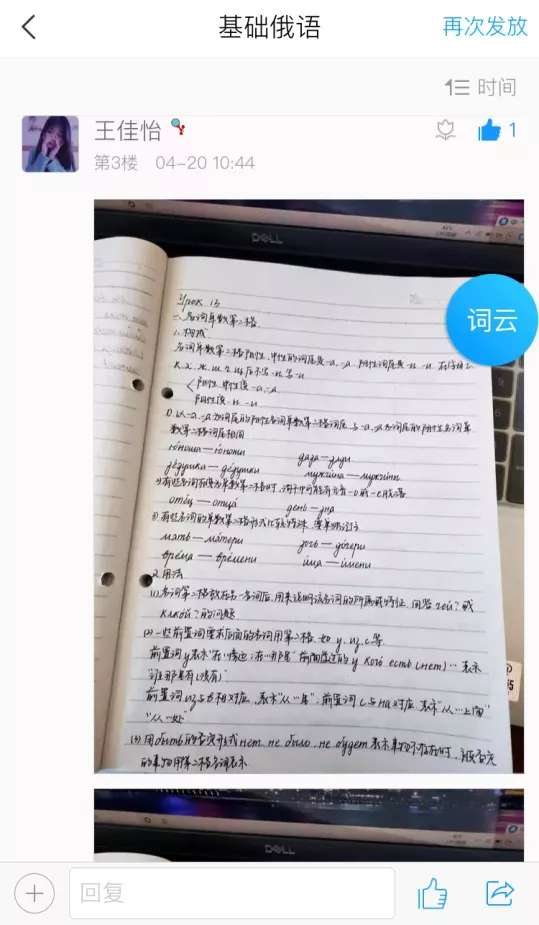 基础俄语
再次发放
时间
王佳怡
1
第3楼 04-20 10:44
DELL
词云
Урок 13
一、名词单数第二格
1. 构成
名词单数第二格阳性、中性的词尾是-а, -я, 阴性词尾是-ы, -и, 在字母
г, к, х, ж, ш, ч, щ后不写-ы写-и
阳性、中性读-а, -я
阴性读-ы, -и
1) 以-а, -я为词尾的阳性名词单数第二格词尾, 与-а, -я为词尾的阴性名词单
数第二格词尾相同
юноша — юноши
дядя — дяди
дедушка — дедушки
мужчина — мужчины
2) 有些名词在变为单数第二格时, 词干中可能有元音-о或-е脱落
отец — отца
день — дня
3) 有些名词的单数第二格形式比较特殊, 要单独记
мать — матери
дочь — дочери
время — времени
имя — имени
2. 用法
(1) 名词第二格放在另一名词后, 用来说明该名词的所属或特征, 回答чей? 或
какой? 的问题
(2) 一些前置词要求后面的名词用第二格, 如 у, из, с 等
前置词у表示"在…旁边; 在…那里" 前面学过的 у кого есть (нет)… 表示
"谁那里有(没有)"
前置词 из与в相对应, 表示"从…里", 前置词 с与на对应, 表示"从…上面"
"从…处"
(3) 用быть的否定形式нет, не было, не будет表示事物不存在时, 被否定
的事物用第二格名词表示
DELL
回复